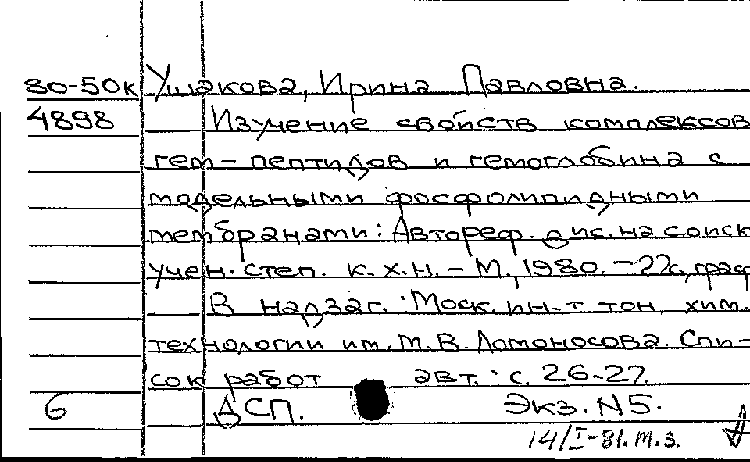 80-50к Ушакова, Ирина Павловна.
4898 Изучение свойств комплексов
гем-пептидов и гемоглобина с
модельными фосфолипидными
мембранами: Автореф. дис. на соиск
учен. степ. к. х. н. – М., 1980. – 22с, граф
В надзаг.: Моск. ин-т тон. хим.
технологии им. М. В. Ломоносова. Спи-
сок работ авт.: с. 26-27.
6 ДСП. Экз. N5.
14/I-81. м.з.